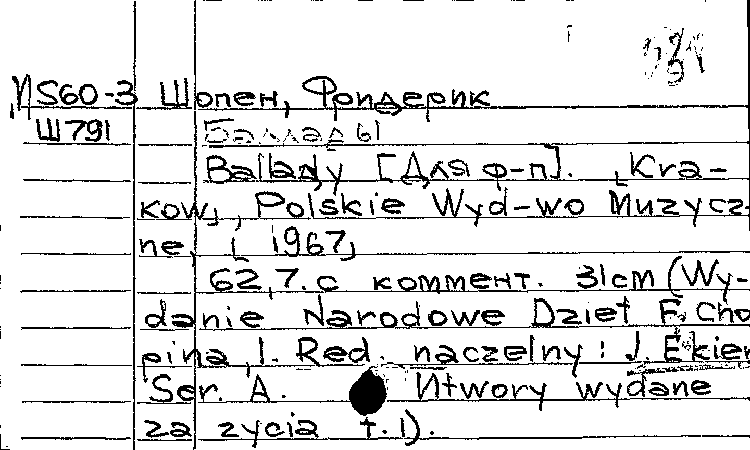 М560-3 Шопен, Фридерик
Ш791 Баллады
Ballady [Для ф-п]. [Kra-
kow], Polskie Wyd-wo Muzycz-
ne, [1967]
62,7.с коммент. 31cm (Wy-
danie Narodowe Dzieł F. Cho
pina, I. Red. naczelny: J. Ekier
Ser. A. Utwory wydane
za zycia т.1).